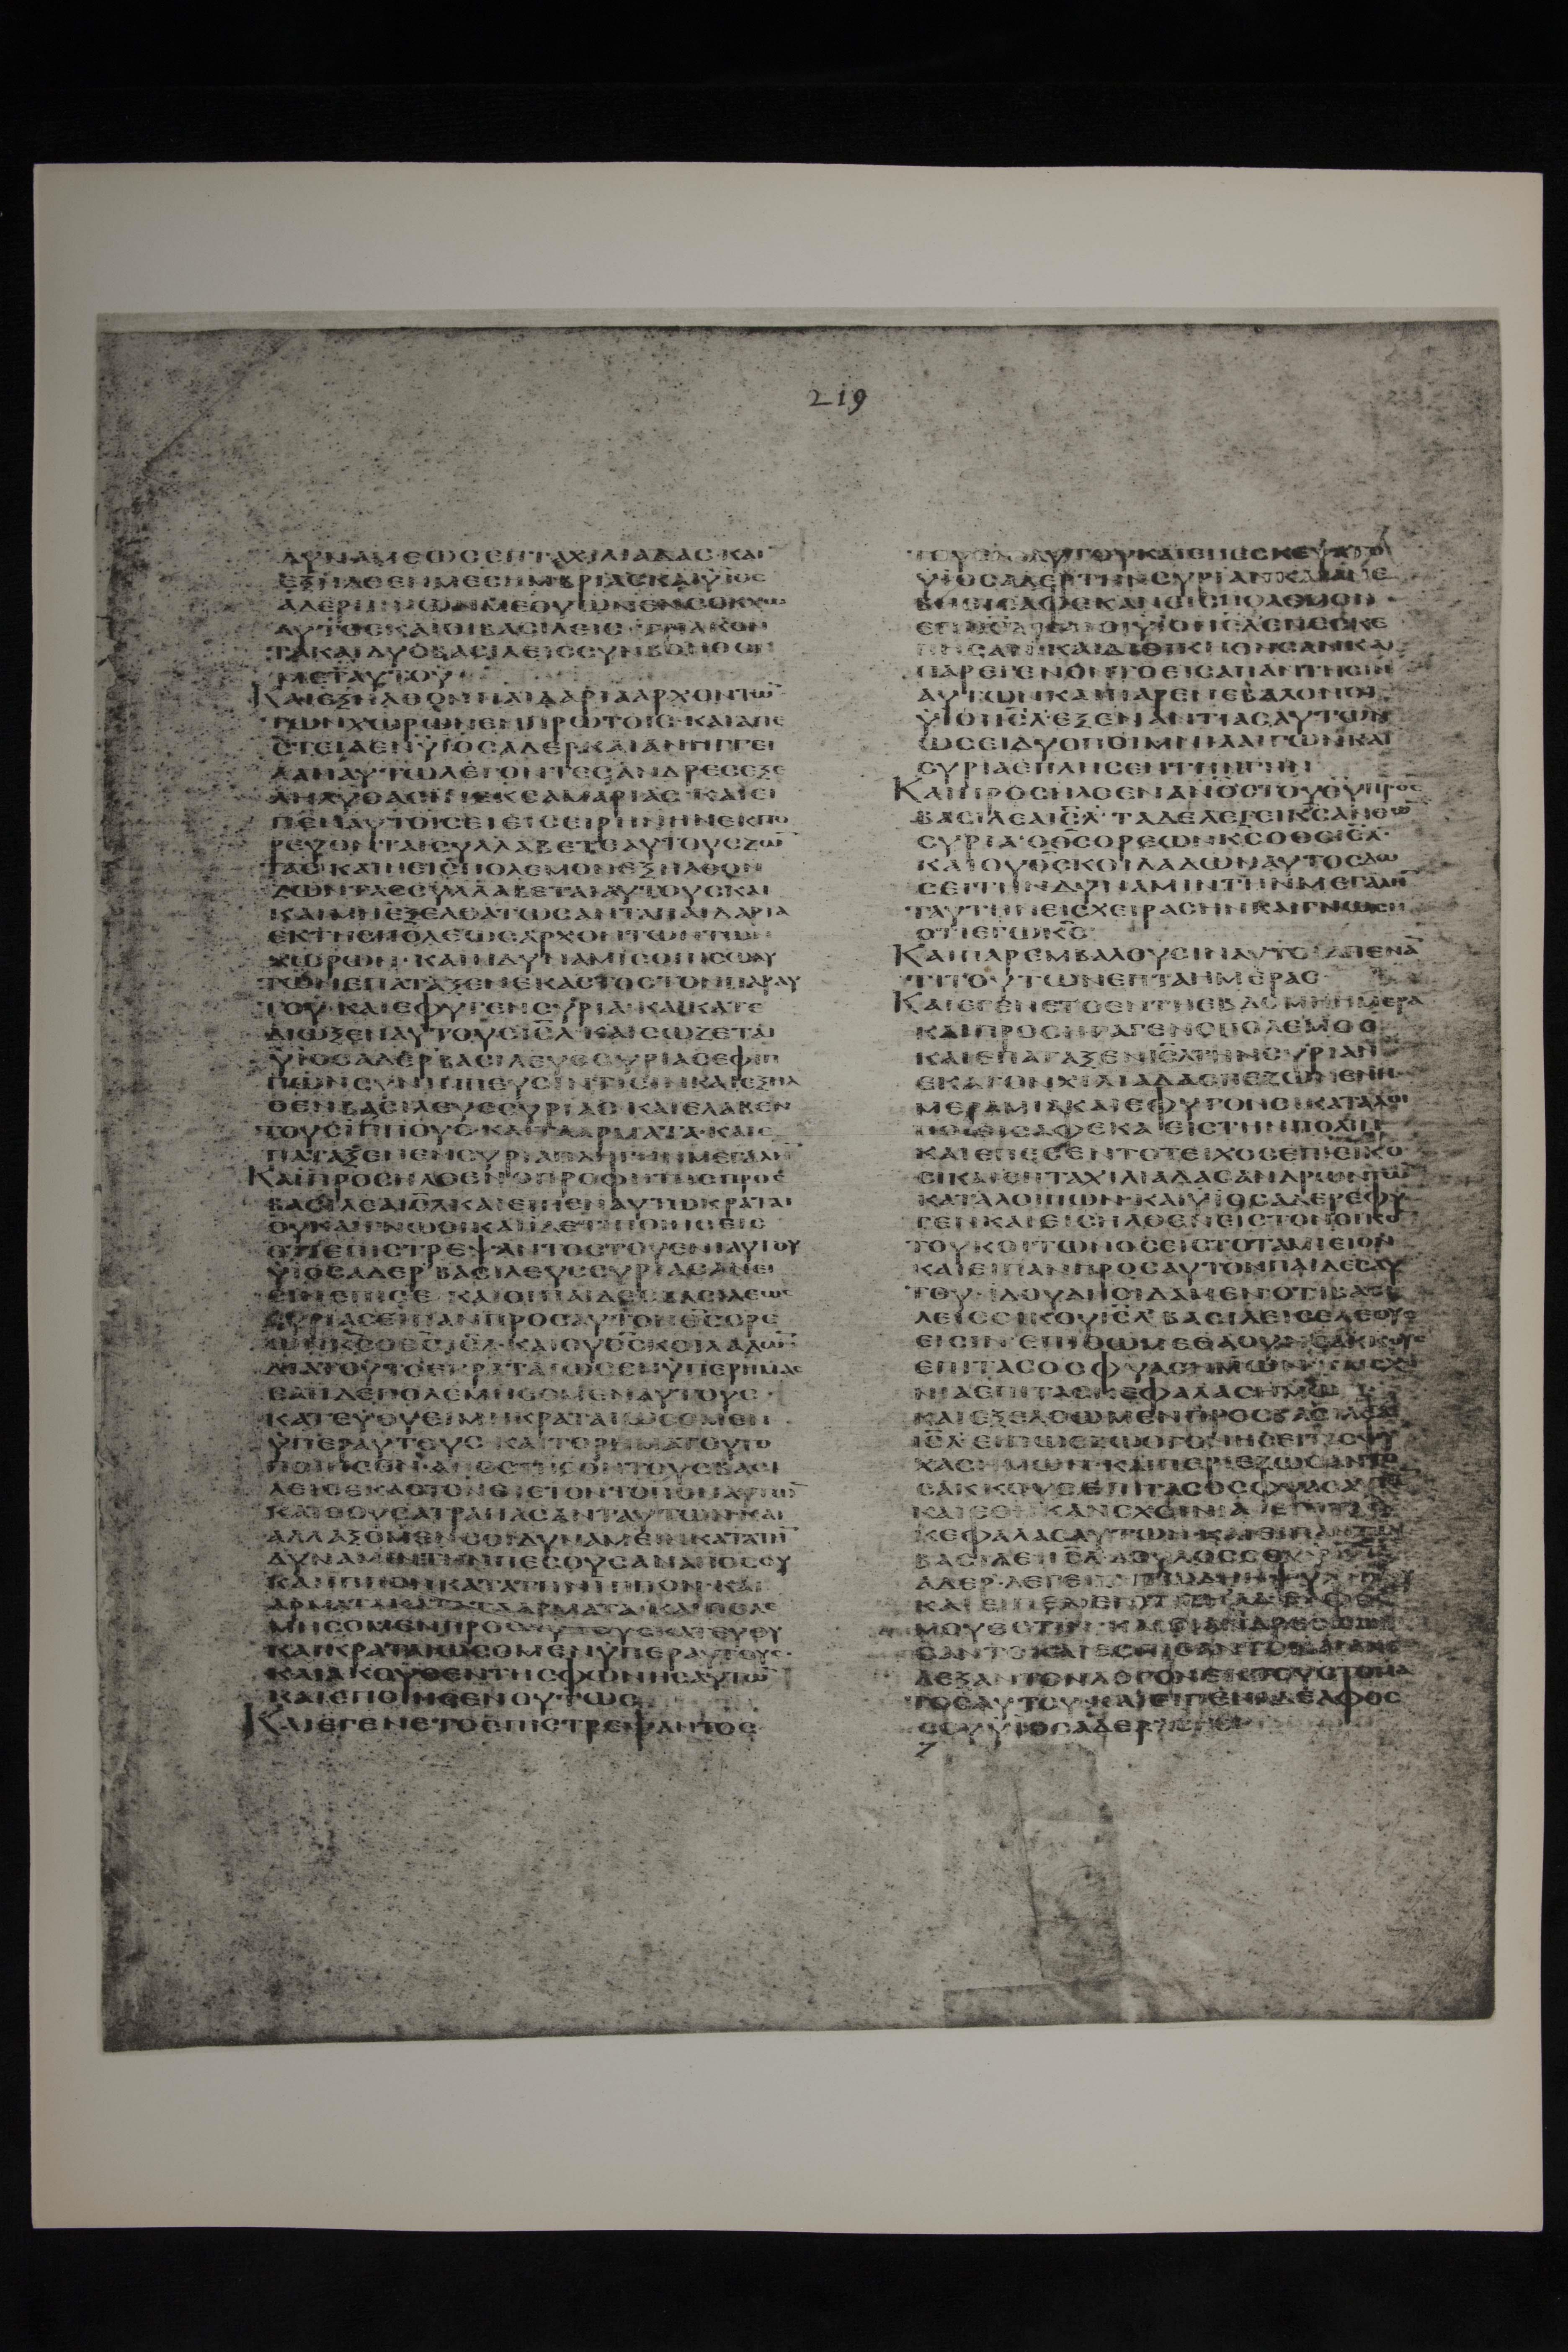 219
ΔΥΝΑΜΕΩΣΕΠΤΑΧΙΛΙΑΔΑΣ·ΚΑΙ
ΕΞΗΛΘΕΝΜΕΣΗΜΒΡΙΑΣΚΑΙΫΙΟΣ
ΑΔΕΡ
ΑΥΤΟΣΚΑΙΟΙΒΑΣΙΛΕΙΣ·ΤΡΙΑΚΟΝ
ΤΑΚΑΙΔΥΟΒΑΣΙΛΕΙΣΣΥΝΒΟΗΘΟΙ
ΜΕΤΑΥΤΟΥ
ΚΑΙΕΞΗΛΘΟΝΠΑΙΔΑΡΙΑΑΡΧΟΝΤΩ̄
ΤΩΝΧΩΡΩΝΕΝΠΡΩΤΟΙΣ·ΚΑΙΑΠΕ
ΣΤΕΙΛΕΝΫΙΟΣΑΔΕΡΚΑΙΑΝΗΓΓΕΙ
ΛΑΝΑΥΤΩΛΕΓΟΝΤΕΣΑΝΔΡΕΣΕΞΕ
ΛΗΛΥΘΑΣΙΝΕΚΣΑΜΑΡΙΑΣ·ΚΑΙΕΙ
ΠΕΝΑΥΤΟΙΣΕΙΕΙΣΕΙΡΗΝΗΝΕΚΠΟ
ΡΕΥΟΝΤΑΙΣΥΛΛΑΒΕΤΕΑΥΤΟΥΣΖΩ̄
ΤΑΣΚΑΙΕΙΕΙΣΠΟΛΕΜΟΝΕΞΗΛΘΟΝ
ΖΩΝΤΑΣΣΥΛΛΑΒΕΤΑΙΑΥΤΟΥΣΚΑΙ
ΚΑΙΜΗΕΞΕΛΘΑΤΩΣΑΝΤΑΠΑΙΔΑΡΙΑ
ΕΚΤΗΣΠΟΛΕΩΣΑΡΧΟΝΤΩΝΤΩΝ
ΧΩΡΩΝ·ΚΑΙΗΔΥΝΑΜΙΣΟΠΙΣΩΑΥ
ΤΩΝΕΠΑΤΑΞΕΝΕΚΑΣΤΟΣΤΟΝΠΑΡΑΥ
ΤΟΥ·ΚΑΙΕΦΥΓΕΝΣΥΡΙΑ·ΚΑΙΚΑΤΕ
ΔΙΩΞΕΝΑΥΤΟΥΣΙΣ̄Λ̄·ΚΑΙΣΩΖΕΤΑΙ
ΫΙΟΣΑΔΕΡΒΑΣΙΛΕΥΣΣΥΡΙΑΣΕΦΙΠ
ΠΩΝΣΥΝΙΠΠΕΥΣΙΝΤΙΣΙΝΚΑΙΕΞΗΛ
ΘΕΝΒΑΣΙΛΕΥΣΣΥΡΙΑΣ·ΚΑΙΕΛΑΒΕΝ
ΤΟΥΣΙΠΠΟΥΣ·ΚΑΙΤΑΑΡΜΑΤΑ·ΚΑΙΕ
ΠΑΤΑΞΕΝΕΝΣΥΡΙΑΠΛΗΓΗΝΜΕΓΑΛΗ̄
ΚΑΙΠΡΟΣΗΛΘΕΝΟΠΡΟΦΗΤΗΣΠΡΟΣ
ΒΑΣΙΛΕΑΙΣ̄Λ̄ΚΑΙΕΙΠΕΝΑΥΤΩΚΡΑΤΑΙ
ΟΥΚΑΙΓΝΩΘΙΚΑΙΙΔΕΤΙΠΟΙΗΣΕΙΣ
ΟΤΙΕΠΙΣΤΡΕΨΑΝΤΟΣΤΟΥΕΝΙΑΥΤΟΥ
ΫΙΟΣΑΔΕΡΒΑΣΙΛΕΥΣΣΥΡΙΑΣΑΝΕΙ
ΣΙΝΕΠΙΣΕ·ΚΑΙΟΙΠΑΙΔΕΣΒΑΣΙΛΕΩΣ
ΣΥΡΙΑΣΕΙΠΑΝΠΡΟΣΑΥΤΟΝΘ̄Σ̄ΟΡΕ
ΩΝΚ̄Σ̄ΟΘ̄Σ̄ΙΣ̄Λ̄·ΚΑΙΟΥΘ̄Σ̄ΚΟΙΛΑΔΩΝ
ΔΙΑΤΟΥΤΟΕΚΡΑΤΑΙΩΣΕΝΫΠΕΡΗΜΑΣ
ΕΑΝΔΕΠΟΛΕΜΗΣΟΜΕΝΑΥΤΟΥΣ·
ΚΑΤΕΥΘΥΕΙΜΗΚΡΑΤΑΙΩΣΟΜΕΝ
ΫΠΕΡΑΥΤΟΥΣ·ΚΑΙΤΟΡΗΜΑΤΟΥΤΟ
ΠΟΙΗΣΟΝ·ΑΠΟΣΤΗΣΟΝΤΟΥΣΒΑΣΙ
ΛΕΙΣΕΚΑΣΤΟΝΕΙΣΤΟΝΤΟΠΟΝΑΥΤΩ̄
ΚΑΙΘΟΥΣΑΤΡΑΠΑΣΑΝΤΑΥΤΩΝ·ΚΑΙ
ΑΛΛΑΞΟΜΕΝΣΟΙΔΥΝΑΜΕΙΝΚΑΤΑΤΗ̄
ΔΥΝΑΜΙΝΤΗΝΠΕΣΟΥΣΑΝΑΠΟΣΟΥ
ΚΑΙΙΠΠΟΝΚΑΤΑΤΗΝΙΠΠΟΝ·ΚΑΙ
ΑΡΜΑΤΑΚΑΤΑΤΑΑΡΜΑΤΑ·ΚΑΙΠΟΛΕ
ΜΗΣΟΜΕΝΠΡΟΣΑΥΤΟΥΣΚΑΤΕΥΘΥ
ΚΑΙΚΡΑΤΑΙΩΣΟΜΕΝΫΠΕΡΑΥΤΟΥΣ·
ΚΑΙΑΚΟΥΘΕΝΤΗΣΦΩΝΗΣΑΥΤΩ̄
ΚΑΙΕΠΟΙΗΣΕΝΟΥΤΩΣ
ΚΑΙΕΓΕΝΕΤΟΕΠΙΣΤΡΕΨΑΝΤΟΣ
ΤΟΥΕΝΙΑΥΤΟΥΚΑΙΕΠΕΣΚΕΨΑΤΟ
ΫΙΟΣΑΔΕΡΤΗΝΣΥΡΙΑΝΚΑΙΑΝΕ
ΒΗΕΙΣΑΦΕΚΑΝΕΙΣΠΟΛΕΜΟΝ
ΕΠΙΙΣ̄Λ̄ΚΑΙΟΙΫΙΟΙΙΣ̄Λ̄ΕΠΕΣΚΕ
ΠΗΣΑΝ
ΠΑΡΕΓΕΝΟΝΤΟΕΙΣΑΠΑΝΤΗΣΙΝ
ΑΥΤΩΝΚΑΙΠΑΡΕΝΕΒΑΛΟΝΟΙ
ΫΙΟΙΙΣ̄Λ̄ΕΞΕΝΑΝΤΙΑΣΑΥΤΩΝ
ΩΣΕΙΔΥΟΠΟΙΜΝΙΑΑΙΓΩΝΚΑΙ
ΣΥΡΙΑΕΠΛΗΣΕΝΤΗΝΓΗΝ
ΚΑΙΠΡΟΣΗΛΘΕΝΑΝΟ̄Σ̄ΤΟΥΘ̄Ῡ·ΠΡΟΣ
ΒΑΣΙΛΕΑΙΣ̄Λ̄·ΤΑΔΕΛΕΓΕΙΚ̄Σ̄ΑΝΘΩ̄
ΣΥΡΙΑ·ΟΘ̄Σ̄ΟΡΕΩΝΚ̄Σ̄ΟΘ̄Σ̄ΙΣ̄Λ̄·
ΚΑΙΟΥΘ̄Σ̄ΚΟΙΛΑΔΩΝΑΥΤΟΣΔΩ
ΣΕΙΤΗΝΔΥΝΑΜΙΝΤΗΝΜΕΓΑΛΗ̄
ΤΑΥΤΗΝΕΙΣΧΕΙΡΑΣΗΝΚΑΙΓΝΩΣΗ
ΟΤΙΕΓΩΚ̄Σ̄
ΚΑΙΠΑΡΕΜΒΑΛΟΥΣΙΝΑΥΤΟΙΑΠΕΝᾹ
ΤΙΤΟΥΤΩΝΕΠΤΑΗΜΕΡΑΣ·
ΚΑΙΕΓΕΝΕΤΟΕΝΤΗΕΒΔΟΜΗΗΜΕΡΑ
ΚΑΙΠΡΟΣΗΓΑΓΕΝΟΠΟΛΕΜΟΣ
ΚΑΙΕΠΑΤΑΞΕΝΙΣ̄Λ̄ΤΗΝΣΥΡΙΑΝ
ΕΚΑΤΟΝΧΙΛΙΑΔΑΣΠΕΖΩΝΕΝΗ
ΜΕΡΑΜΙΑΚΑΙΕΦΥΓΟΝΟΙΚΑΤΑΛΟΙ
ΠΟΙΕΙΣΑΦΕΚΑΕΙΣΤΗΝΠΟΛΙΝ
ΚΑΙΕΠΕΣΕΝΤΟΤΕΙΧΟΣΕΠΙΕΙΚΟ
ΣΙΚΑΙΕΠΤΑΧΙΛΙΑΔΑΣΑΝΔΡΩΝΤΩ̄
ΚΑΤΑΛΟΙΠΩΝ·ΚΑΙΫΙΟΣΑΔΕΡΕΦΥ
ΓΕΝΚΑΙΕΙΣΗΛΘΕΝΕΙΣΤΟΝΟΙΚΟ̄
ΤΟΥΚΟΙΤΩΝΟΣΕΙΣΤΟΤΑΜΙΕΙΟΝ
ΚΑΙΕΙΠΑΝΠΡΟΣΑΥΤΟΝΠΑΙΔΕΣΑΥ
ΤΟΥ·ΙΔΟΥΔΗΟΙΔΑΜΕΝΟΤΙΒΑΣΙ
ΛΕΙΣΟΙΚΟΥΙΣ̄Λ̄ΒΑΣΙΛΕΙΣΕΛΕΟΥΣ
ΕΙΣΙΝ·ΕΠΙΘΩΜΕΘΑΟΥΝΣΑΚΚΟΥΣ
ΕΠΙΤΑΣΟΣΦΥΑΣΗΜΩΝΚΑΙΣΧΟΙ
ΝΙΑΕΠΙΤΑΣΚΕΦΑΛΑΣΗΜΩΝ
ΚΑΙΕΞΕΛΘΩΜΕΝΠΡΟΣΒΑΣΙΛΕΑ
ΙΣ̄Λ̄·ΕΙΠΩΣΖΩΟΓΟΝΗΣΕΙΤΑΣΨΥ
ΧΑΣΗΜΩΝ·ΚΑΙΠΕΡΙΕΖΩΣΑΝΤΟ
ΣΑΚΚΟΥΣΕΠΙΤΑΣΟΣΦΥΑΣΑΥΤΩ̄
ΚΑΙΕΘΗΚΑΝΣΧΟΙΝΙΑΕΠΙΤΑΣ
ΚΕΦΑΛΑΣΑΥΤΩΝ·ΚΑΙΕΙΠΑΝΤΩ
ΒΑΣΙΛΕΙΙΣ̄Λ̄ΔΟΥΛΟΣΣΟΥΫΙΟΣ
ΑΔΕΡ·ΛΕΓΕΙ
ΚΑΙΕΙΠΕΝ
ΜΟΥΕΣΤΙΝ·ΚΑΙΟΙΑΝΔΡΕΣΟΙΩΝΙ
ΣΑΝΤΟΚΑΙΕΣΠΙΣΑΝΤΟΚΑΙΑΝΕ
ΛΕΞΑΝΤΟΝΛΟΓΟΝΕΚΤΟΥΣΤΟΜΑ
ΤΟΣΑΥΤΟΥ·ΚΑΙΕΙΠΕΝΑΔΕΛΦΟΣ
ΣΟΥΫΙΟΣΑΔΕΡ